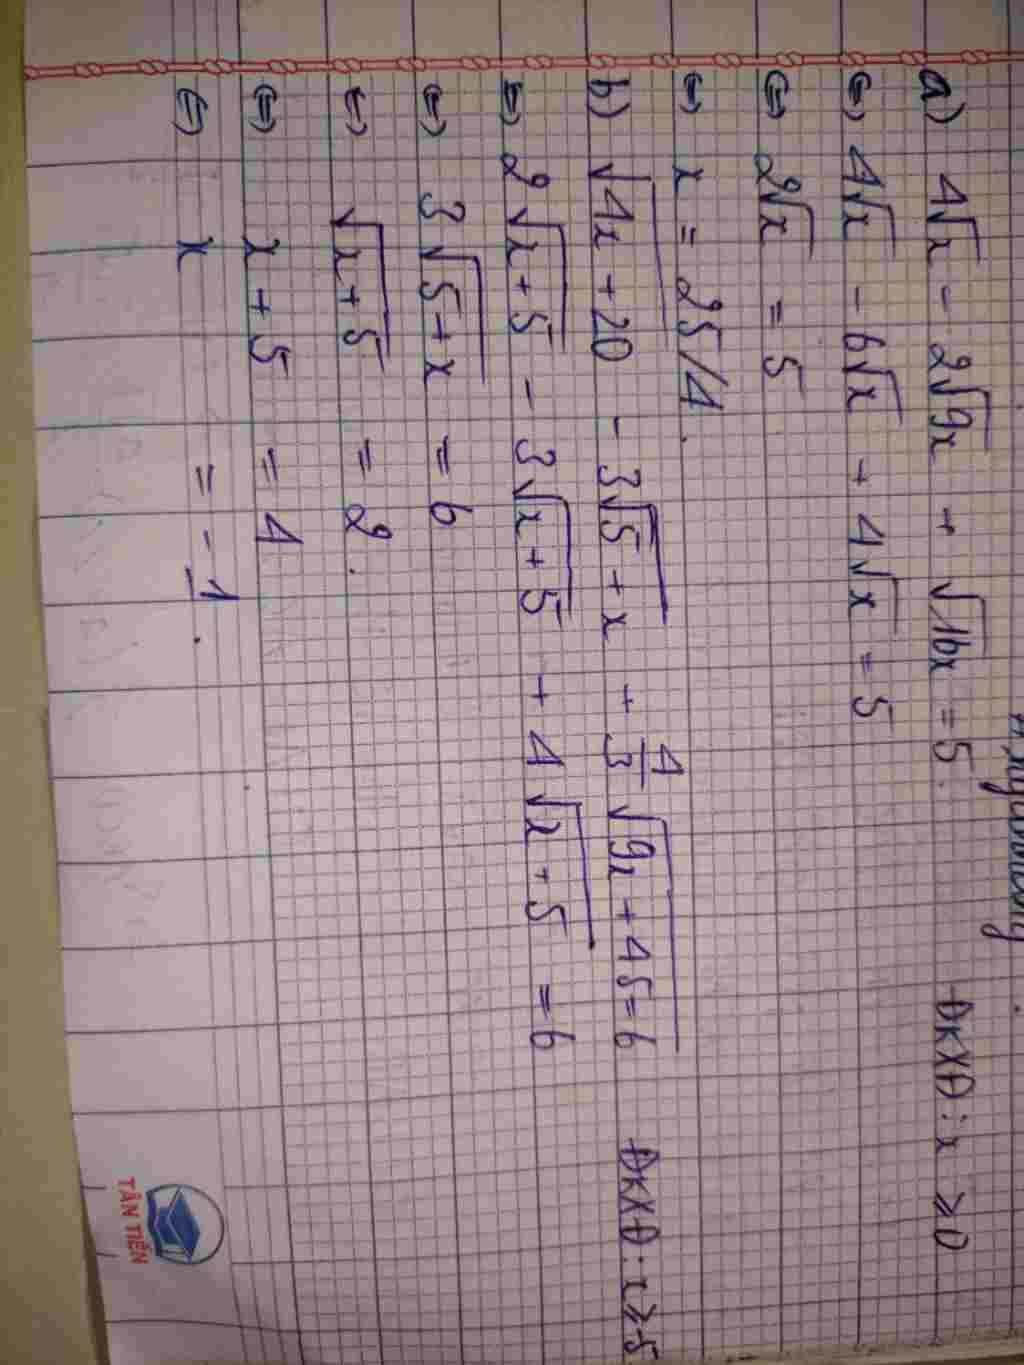 a) 4√x - 2√9x + √16x = 5. ĐKXĐ: x ≥ 0
⇔ 4√x - 6√x + 4√x = 5
⇔ 2√x = 5
⇔ x = 25/4.
b) √4x + 20 - 3√5 + x + 4/3 √9x + 45 = 6 ĐKXĐ: x ≥ 5
⇔ 2√x + 5 - 3√x + 5 + 4√x + 5 = 6
⇔ 3√5 + x = 6
⇔ √x + 5 = 2.
⇔ x + 5 = 4
⇔ x = -1.
TÂN TIẾN